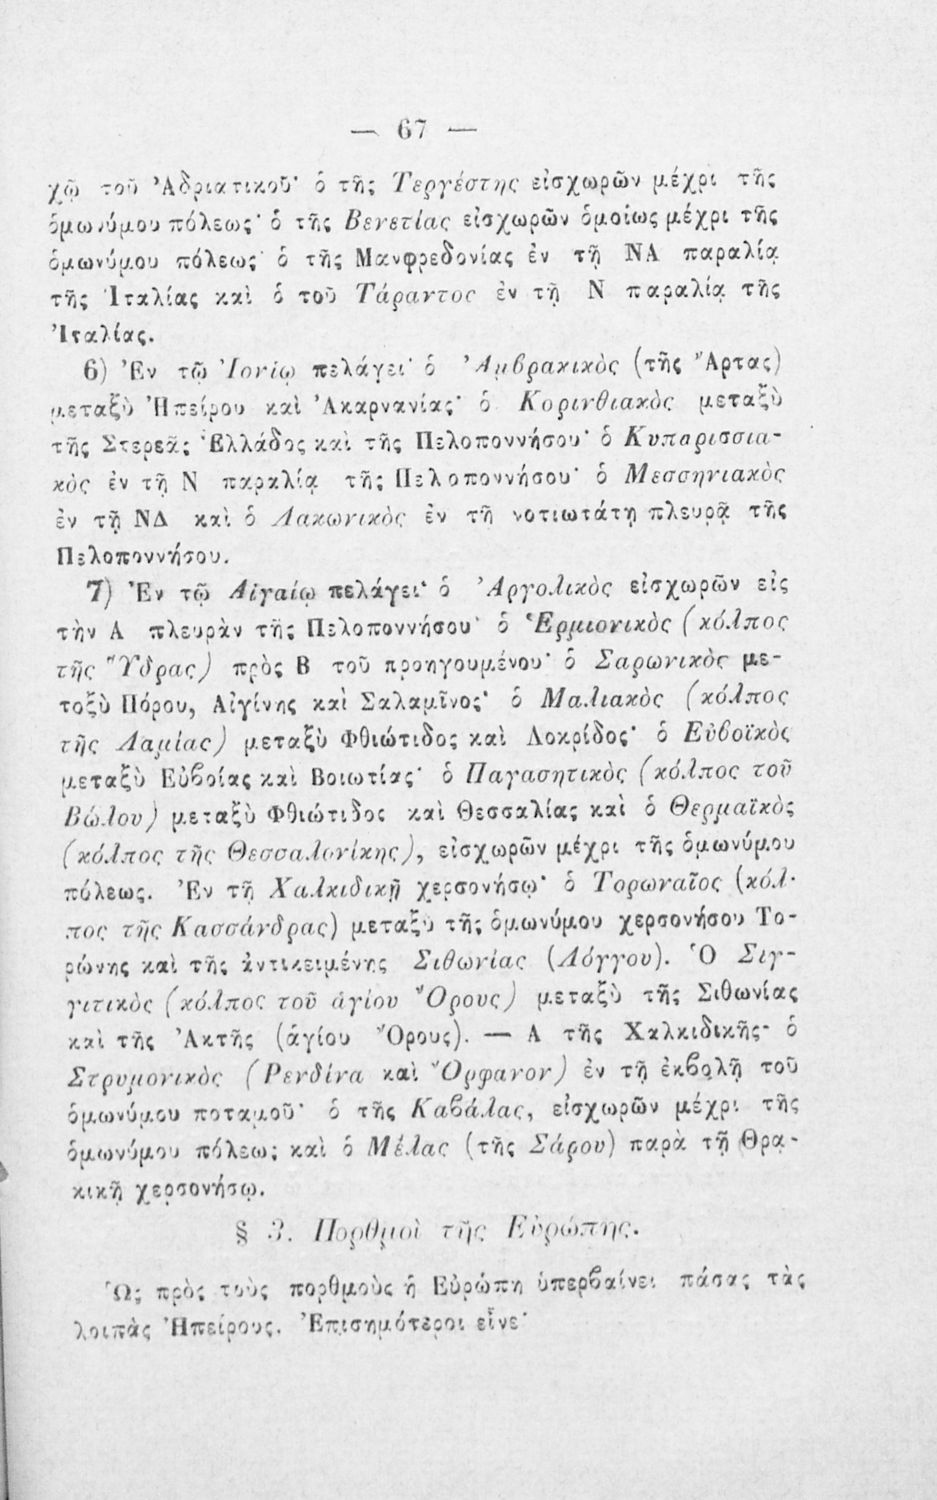 — 67 —
χῷ τοῦ Ἀδριατικοῦ· ὁ τῆς Τεργέστης εἰσχωρῶν μέχρι τῆς
ὁμωνύμου πόλεως· ὁ τῆς Βενετίας εἰσχωρῶν ὁμοίως μέχρι τῆς
ὁμωνύμου πόλεως· ὁ τῆς Μανφρεδονίας ἐν τῇ ΝΑ παραλίᾳ
τῆς Ἰταλίας καὶ ὁ τοῦ Τάραντος ἐν τῇ Ν παραλίᾳ τῆς
Ἰταλίας.
6) Ἐν τῷ Ἰονίῳ πελάγει· ὁ Ἀμβρακικὸς (τῆς Ἄρτας)
μεταξὺ Ἠπείρου καὶ Ἀκαρνανίας· ὁ Κορινθιακὸς μεταξὺ
τῆς Στερεᾶς Ἑλλάδος καὶ τῆς Πελοποννήσου· ὁ Κυπαρισσια-
κὸς ἐν τῇ Ν παραλίᾳ τῆς Πελοποννήσου· ὁ Μεσσηνιακὸς
ἐν τῇ ΝΔ καὶ ὁ Λακωνικὸς ἐν τῇ νοτιωτάτῃ πλευρᾷ τῆς
Πελοποννήσου.
7) Ἐν τῷ Αἰγαίῳ πελάγει· ὁ Ἀργολικὸς εἰσχωρῶν εἰς
τὴν Α πλευρὰν τῆς Πελοποννήσου· ὁ Ἑρμιονικὸς (κόλπος
τῆς Ὕδρας) πρὸς Β τοῦ προηγουμένου· ὁ Σαρωνικὸς με-
τοξὺ Πόρου, Αἰγίνης καὶ Σαλαμῖνος· ὁ Μαλιακὸς (κόλπος
τῆς Λαμίας) μεταξὺ Φθιώτιδος καὶ Λοκρίδος· ὁ Εὐβοϊκὸς
μεταξὺ Εὐβοίας καὶ Βοιωτίας· ὁ Παγασητικὸς (κόλπος τοῦ
Βώλου) μεταξὺ Φθιώτιδος καὶ Θεσσαλίας καὶ ὁ Θερμαϊκὸς
(κόλπος τῆς Θεσσαλονίκης), εἰσχωρῶν μέχρι τῆς ὁμωνύμου
πόλεως. Ἐν τῇ Χαλκιδικῇ χερσονήσῳ· ὁ Τορωναῖος (κόλ-
πος τῆς Κασσάνδρας) μεταξὺ τῆς ὁμωνύμου χερσονήσου Το-
ρώνης καὶ τῆς ἀντικειμένης Σιθωνίας (Λόγγου). Ὁ Σιγ-
γιτικὸς (κόλπος τοῦ ἁγίου Ὄρους) μεταξὺ τῆς Σιθωνίας
καὶ τῆς Ἀκτῆς (ἁγίου Ὄρους). — Α τῆς Χαλκιδικῆς· ὁ
Στρυμονικὸς (Ρενδίνα καὶ Ὄρφανον) ἐν τῇ ἐκβολῇ τοῦ
ὁμωνύμου ποταμοῦ· ὁ τῆς Καβάλας, εἰσχωρῶν μέχρι τῆς
ὁμωνύμου πόλεως καὶ ὁ Μέλας (τῆς Σάρου) παρὰ τῇ Θρᾳ-
κικῇ χερσονήσῳ.
§ 3. Πορθμοὶ τῆς Εὐρώπης.
Ὡς πρὸς τοὺς πορθμοὺς ἡ Εὐρώπη ὑπερβαίνει πάσας τὰς
λοιπὰς Ἠπείρους. Ἐπισημότεροι εἶνε·